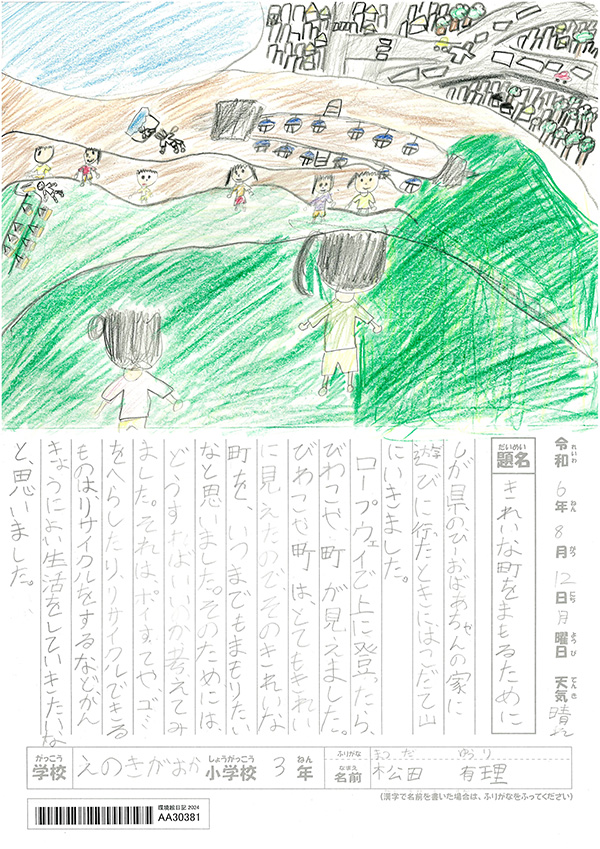 令和6年8月12日月曜日 天気 晴れ
れいわ ねん がつ にち ようび てんき
だいめい
題名 きれいな町をまもるために
しが県のひーおばあちゃんの家に
遊びに行ったときにはこだて山
にいきました。
ロープウェイで上に登ったら、
びわこや、町が見えました。
びわこや町は、とてもきれい
に見えたのでそのきれいな
町を、いつまでもまもりたい
なと思いました。そのためには、
どうすればいいか考えてみ
ました。それは、ポイすてや、ゴミ
をへらしたり、リサイクルできる
ものはリサイクルをするなどかん
きょうによい生活をしていきたいな
と思いました。
がっこう しょうがっこう ねん ふりがな まつだ ゆうり
学校 えのきがおか 小学校 3年 なまえ 名前 松田 有理
(漢字で名前を書いた場合は、ふりがなをふってください)
環境絵日記 2024
AA30381